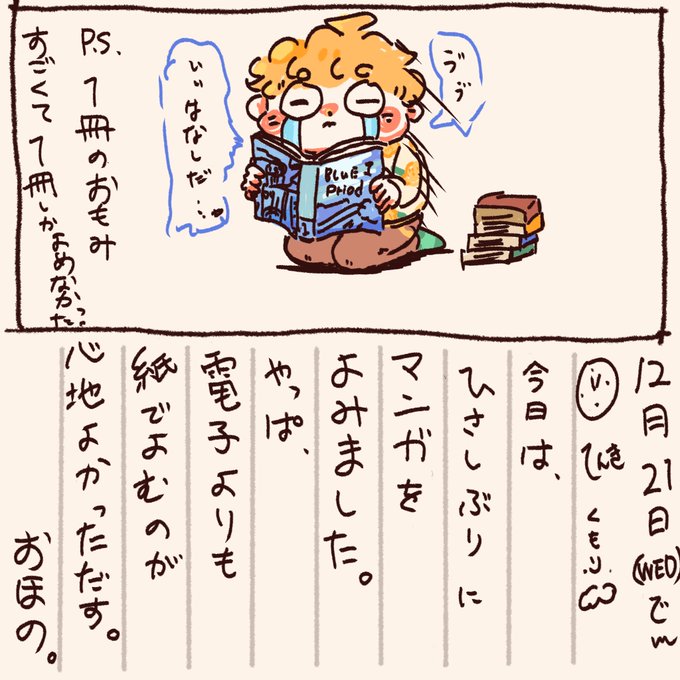 ゔゔ
いいはなしだ…
BLUE
Priod
P.S. 1冊のおもみ
すごくて1冊しかよめなかった…
12月21日(WED)で
てんき くもり
今日は、
ひさしぶりに
マンガを
よみました。
やっぱ、
電子よりも
紙でよむのが
心地よかっただす。
おほの。